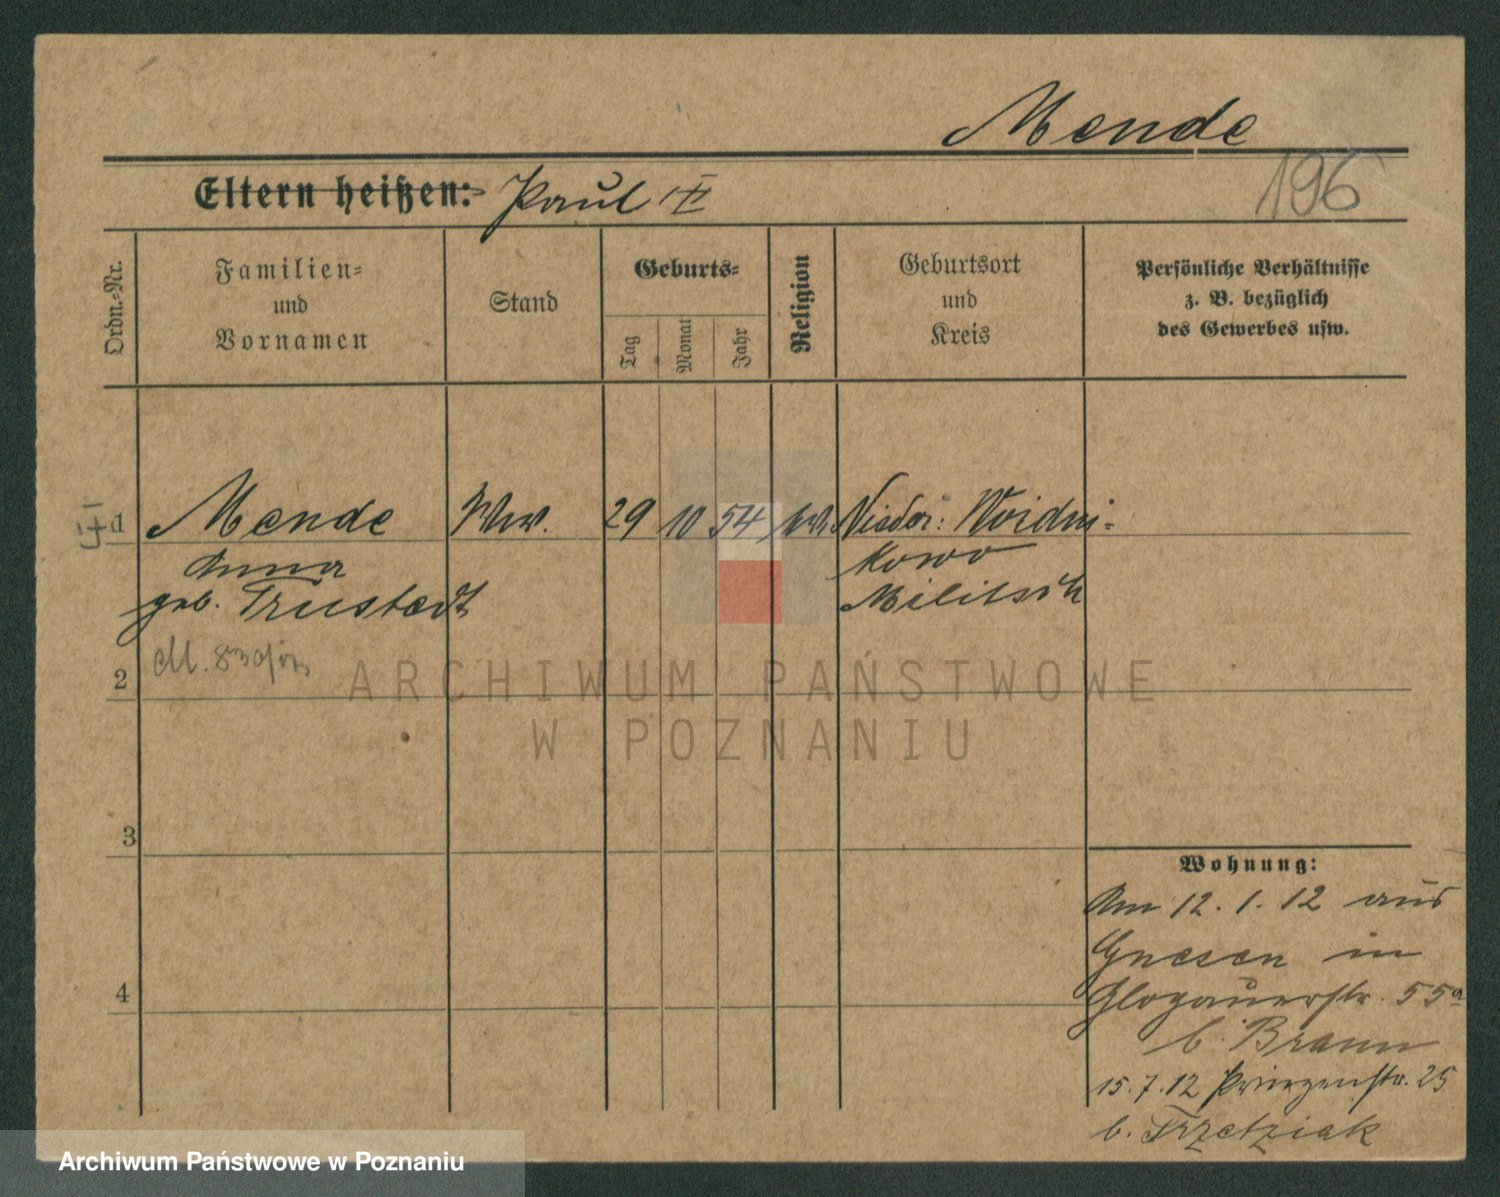 Mende
196
Eltern heißen: Paul
Ordn.-Nr.
Familien-
und
Vornamen
Stand
Geburts-
Tag
Monat
Jahr
Religion
Geburtsort
und
Kreis
Persönliche Verhältnisse
z. B. bezüglich
des Gewerbes usw.
1
Mende
Ww.
29
10
54
Nieder: Woidni-
Anna
kowo
geb. Trustedt
Militsch
2
3
4
Wohnung:
Am 12. 1. 12 aus
Gnesen in
Glogauerstr. 55a
b. Braun
15. 7. 12 Prinzenstr. 25
b. Trzetziak
ARCHIWUM PAŃSTWOWE
W POZNANIU
Archiwum Państwowe w Poznaniu